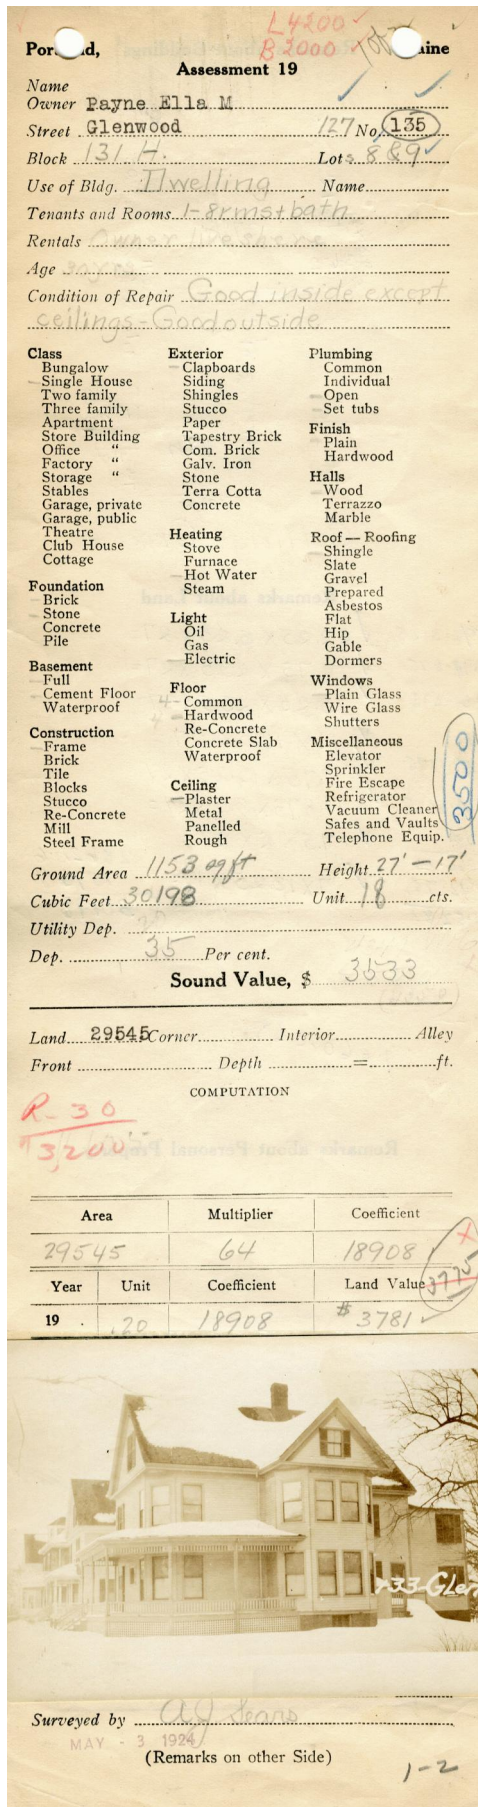 L 4200
B 2000
Portland, Maine
Assessment 19
Name
Owner Payne Ella M
Street Glenwood 127 No. 135
Block 131 H. Lots 8 & 9
Use of Bldg. Dwelling Name
Tenants and Rooms 1-8 rms + bath
Rentals Owner lives here
Age 30 yrs
Condition of Repair Good inside except
ceilings - Good outside
Class
Bungalow
Single House
Two family
Three family
Apartment
Store Building
Office "
Factory "
Storage "
Stables
Garage, private
Garage, public
Theatre
Club House
Cottage
Foundation
Brick
Stone
Concrete
Pile
Basement
Full
Cement Floor
Waterproof
Construction
Frame
Brick
Tile
Blocks
Stucco
Re-Concrete
Mill
Steel Frame
Exterior
Clapboards
Siding
Shingles
Stucco
Paper
Tapestry Brick
Com. Brick
Galv. Iron
Stone
Terra Cotta
Concrete
Heating
Stove
Furnace
Hot Water
Steam
Light
Oil
Gas
Electric
Floor
4 - Common
4 - Hardwood
Re-Concrete
Concrete Slab
Waterproof
Ceiling
Plaster
Metal
Panelled
Rough
Plumbing
Common
Individual
Open
Set tubs
Finish
Plain
Hardwood
Halls
Wood
Terrazzo
Marble
Roof — Roofing
Shingle
Slate
Gravel
Prepared
Asbestos
Flat
Hip
Gable
Dormers
Windows
Plain Glass
Wire Glass
Shutters
Miscellaneous
Elevator
Sprinkler
Fire Escape
Refrigerator
Vacuum Cleaner
Safes and Vaults
Telephone Equip.
3500
Ground Area 1153 sq ft Height 27' - 17'
Cubic Feet 30198 Unit 18 cts.
Utility Dep.
Dep. 35 Per cent.
Sound Value, $ 3533
Land 29545 Corner Interior Alley
Front Depth = ft.
COMPUTATION
R-30
3,200
Area Multiplier Coefficient
29545 64 18908
Year Unit Coefficient Land Value 3775
19 .20 18908 $3781
7-33-Glen
Surveyed by A J Sears
MAY - 3 1924
(Remarks on other Side)
1-2